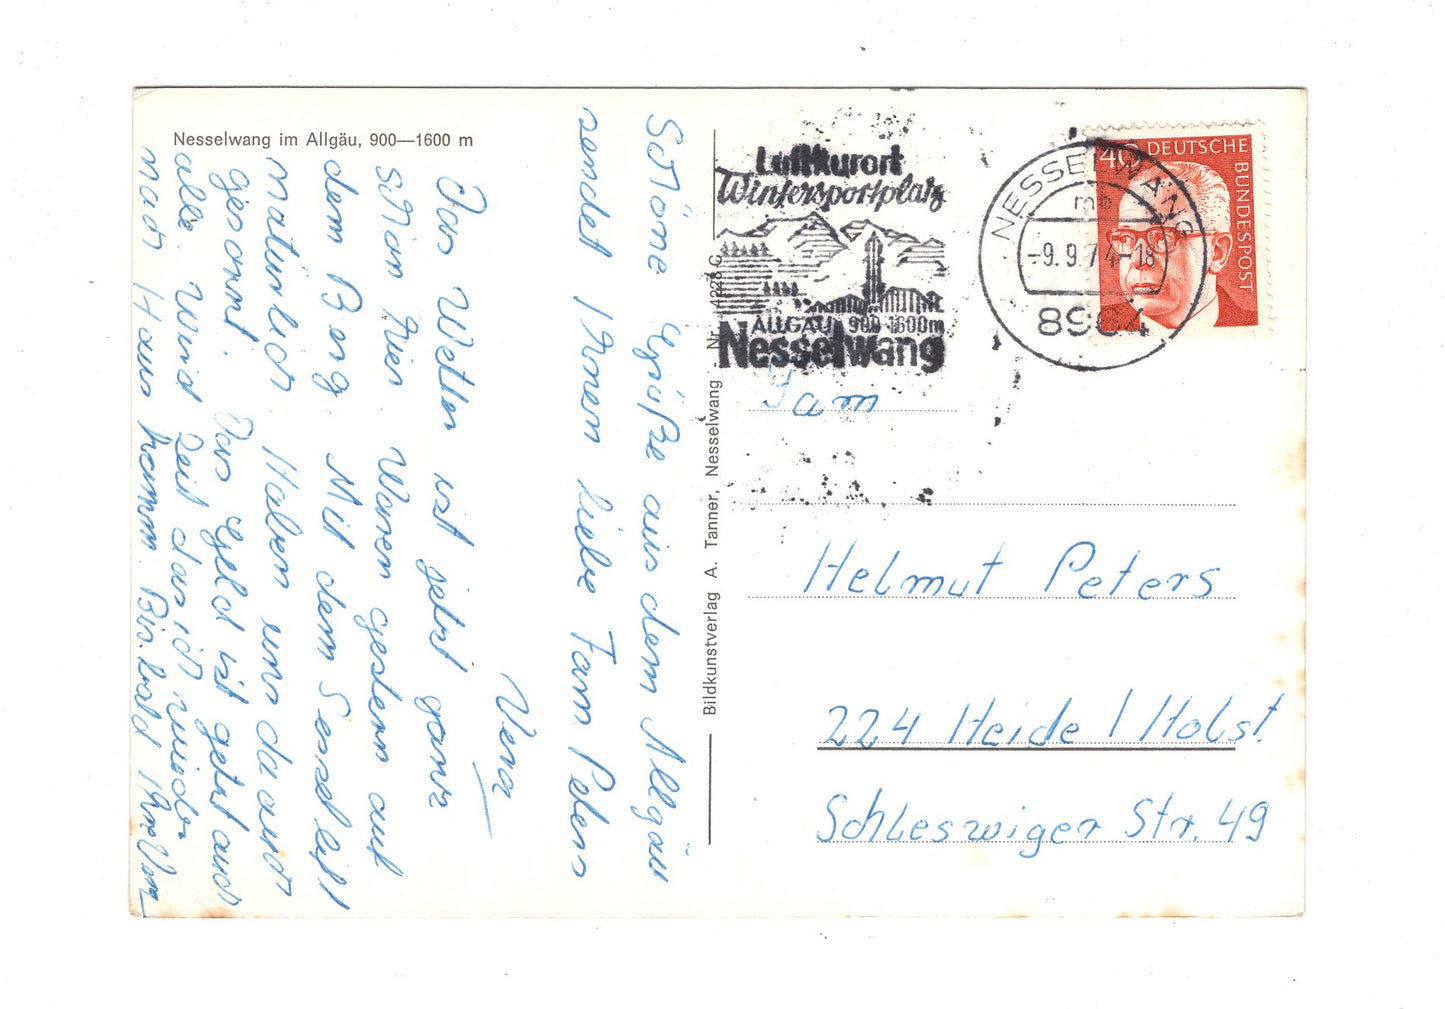 Nesselwang im Allgäu, 900—1600 m
Schöne Grüße aus dem Allgäu
sendet Ihnen liebe Fam Peters
Vera
Das Wetter ist jetzt ganz
schön hier. Waren gestern auf
dem Berg. Mit dem Sessellift
natürlich. Haben uns da auch
gesonnt. Das Geld ist jetzt auch
alle. Wird Zeit das ich wieder
nach Haus komm. Bis bald Ihre Vera
Bildkunstverlag A. Tanner, Nesselwang - Nr. 4228 G
Luftkurort
Wintersportplatz
ALLGÄU 900-1600m
Nesselwang
NESSELWANG
mb
-9.9.74-18
8964
40 DEUTSCHE
BUNDESPOST
Fam
Helmut Peters
224 Heide / Holst.
Schleswiger Str. 49